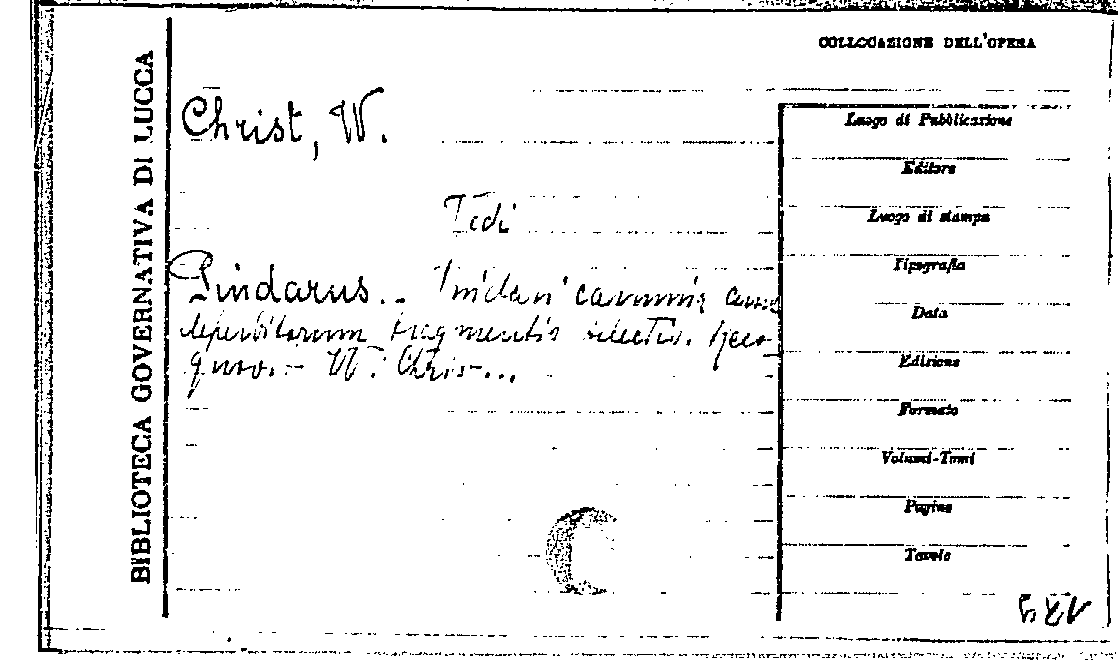 BIBLIOTECA GOVERNATIVA DI LUCCA
COLLOCAZIONE DELL'OPERA
Christ, W.
Vedi
Pindarus.. Pindari carmina cum
deperditorum fragmentis selectis. Reco-
gnov.- W. Chris-...
Luogo di Pubblicazione
Editore
Luogo di stampa
Tipografia
Data
Edizione
Formato
Volumi-Tomi
Pagine
Tavole
C